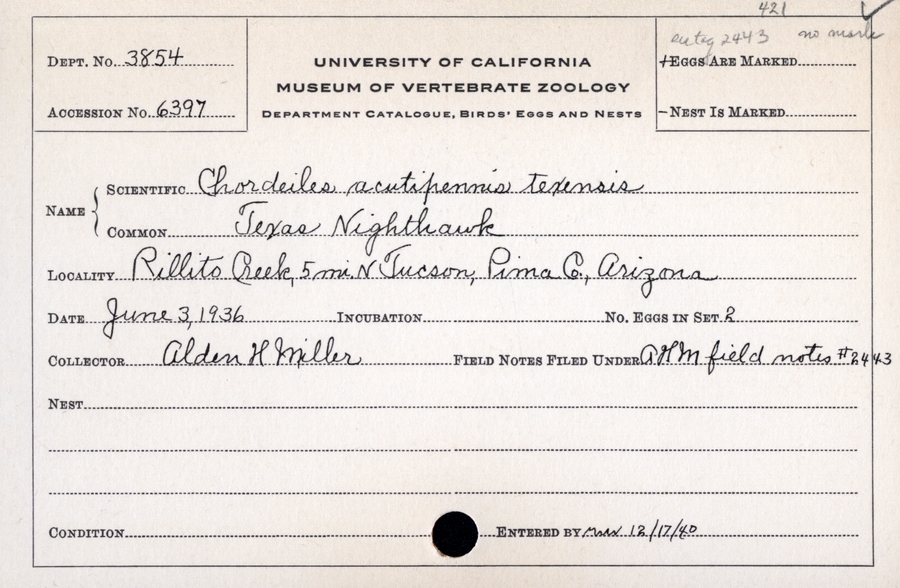 421
2443 no mark
DEPT. NO. 3854
UNIVERSITY OF CALIFORNIA
+EGGS ARE MARKED
MUSEUM OF VERTEBRATE ZOOLOGY
ACCESSION NO. 6397
DEPARTMENT CATALOGUE, BIRDS' EGGS AND NESTS
-NEST IS MARKED
NAME
SCIENTIFIC Chordeiles acutipennis texensis
COMMON Texas Nighthawk
LOCALITY Rillito Creek, 5 mi. N Tucson, Pima Co., Arizona
DATE June 3, 1936 INCUBATION NO. EGGS IN SET 2
COLLECTOR Alden H Miller FIELD NOTES FILED UNDER AHM field notes #2443
NEST
CONDITION ENTERED BY 12/17/40